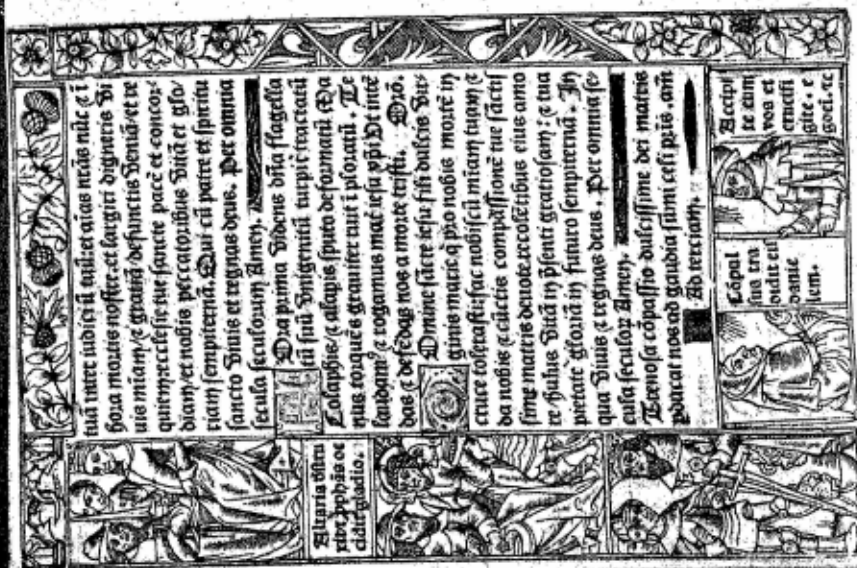 tuā inter iudiciū tuū: et aīas nr̄as nūc ⁊ ī
hora mortis nostre. et largiri digneris vi
uis miam / ⁊ gratiā / defunctis veniā et re
quiem: ecclesie tue sancte pacē et concor/
diam / et nobis peccatoribus vitā et glo/
riam sempiternā. Qui cū patre et spiritu
sancto viuis et regnas deus. Per omnia
secula seculorum Amen.
Ora prima videns dn̄a flagella
tū suū vnigenitū turpiť tractatū
Colaphis / ⁊ alapis sputo deformatū Ma
ter
laudam⁹ ⁊ rogamus mať iesu xp̄i vt intē
das ⁊ defēdas nos a morte tristi. Orō.
Omine sācte iesu fili dulcis vir/
ginis marie. q̄ pro nobis mortē in
cruce tolerasti: fac nobiscū miam tuam ⁊
da nobis ⁊ cūctis compassionē tue sāctis
sime matris deuote recolētibus eius amo
re huius vitā in p̄senti gratiosam: ⁊ tua
pietate gloriā in futuro sempiternā. In
qua viuis ⁊ regnas deus. Per omnia se/
cula seculor Amen.
cōpassio dulcissime dei matris
pducat nos ad gaudia sūmi celi pr̄is. amē
Ad terciam.
xeť pphās oc
cidit gladio.
Cōpul
sus tra
didit eis
danie
lem.
Accipi
te eum
vos et
crucifi
gite. e